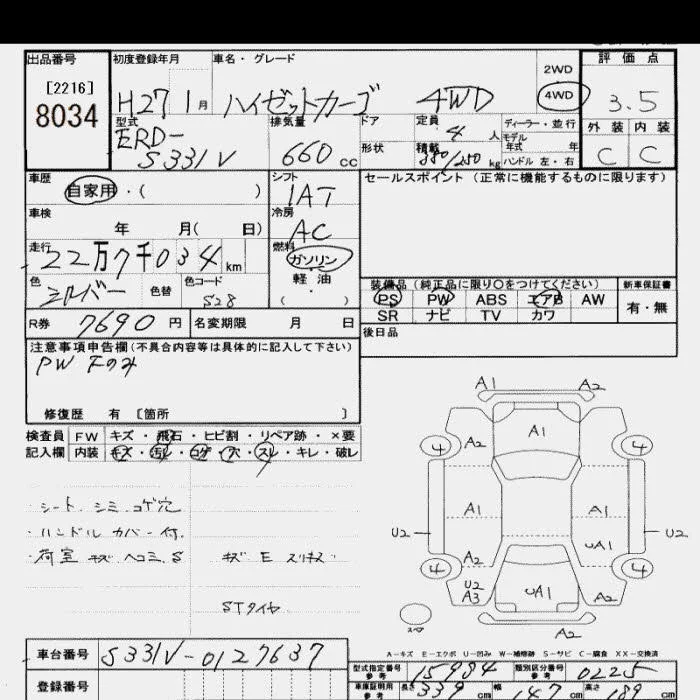 出品番号
[2216]
8034
初度登録年月
H27 1月
車名・グレード
ハイゼットカーゴ 4WD
2WD
4WD
評価点
3.5
外装 内装
C C
型式
EBD-
S331V
排気量
660cc
ドア
形状
定員
4人
積載
350/250kg
ディーラー・並行
モデル
年式 年
ハンドル 左・右
車歴
自家用・( )
シフト
IAT
セールスポイント(正常に機能するものに限ります)
車検
年 月( 日)
冷房
AC
走行
22万7千034km
燃料
ガソリン
軽油
( )
色
シルバー
色替
色コード
S28
装備品(純正品に限り○をつけてください)
PS PW ABS エアB AW
SR ナビ TV カワ
新車保証書
有・無
R券 7690円
名変期限 月 日
後日品
注意事項申告欄(不具合内容等は具体的に記入して下さい)
PW Fのみ
修復歴 有 〔箇所 〕
検査員
記入欄
FW キズ・飛石・ヒビ割・リペア跡・×要
内装 キズ・汚レ・コゲ・穴・スレ・キレ・破レ
・シート シミ コゲ穴
・ハンドル カバー付
・荷室 キズ ヘコミ S
キズ E スリキズ
STタイヤ
A1 A2
A1
4 A2 4
A1 A1
U2 U2
UA1
A2
4 4
U2
A3
UA1
A2
スペア
A2
A-キズ E-エクボ U-凹み W-補修跡 S-サビ C-腐食 XX-交換済
車台番号 S331V-0127637
登録番号
型式指定番号
参考
15984
類別区分番号
参考
0225
車庫証明用
参考
長さ 339cm
幅 147cm
高さ
cm